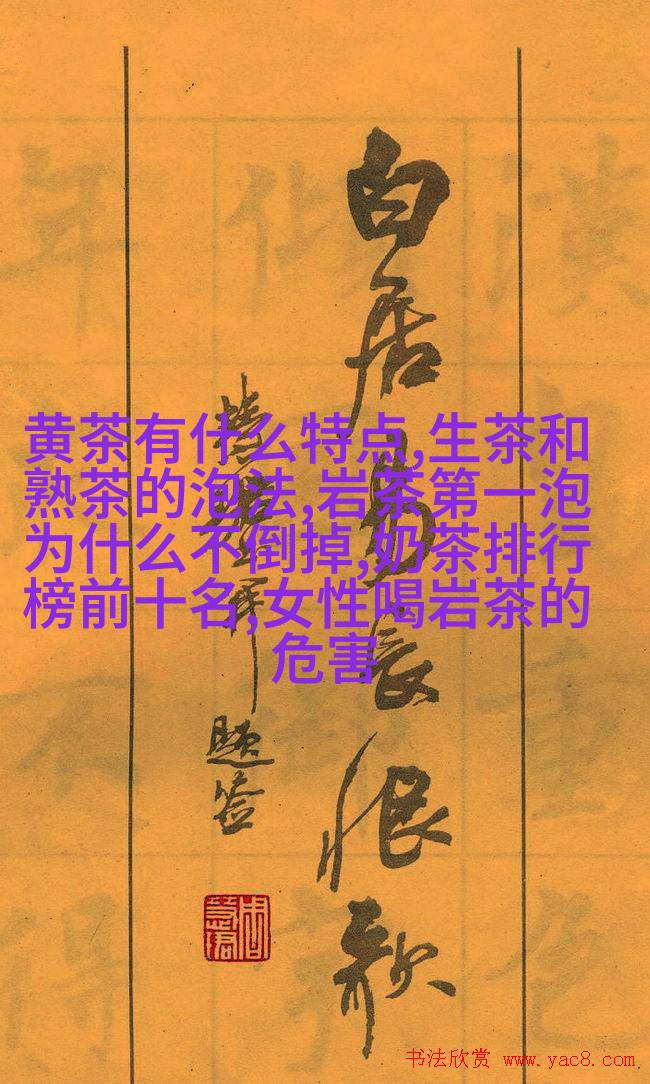 白居易长恨歌
题签
黄茶有什么特点,生茶和
熟茶的泡法,岩茶第一泡
为什么不倒掉,奶茶排行
榜前十名,女性喝岩茶的
危害
书法欣赏 www.yac8.com